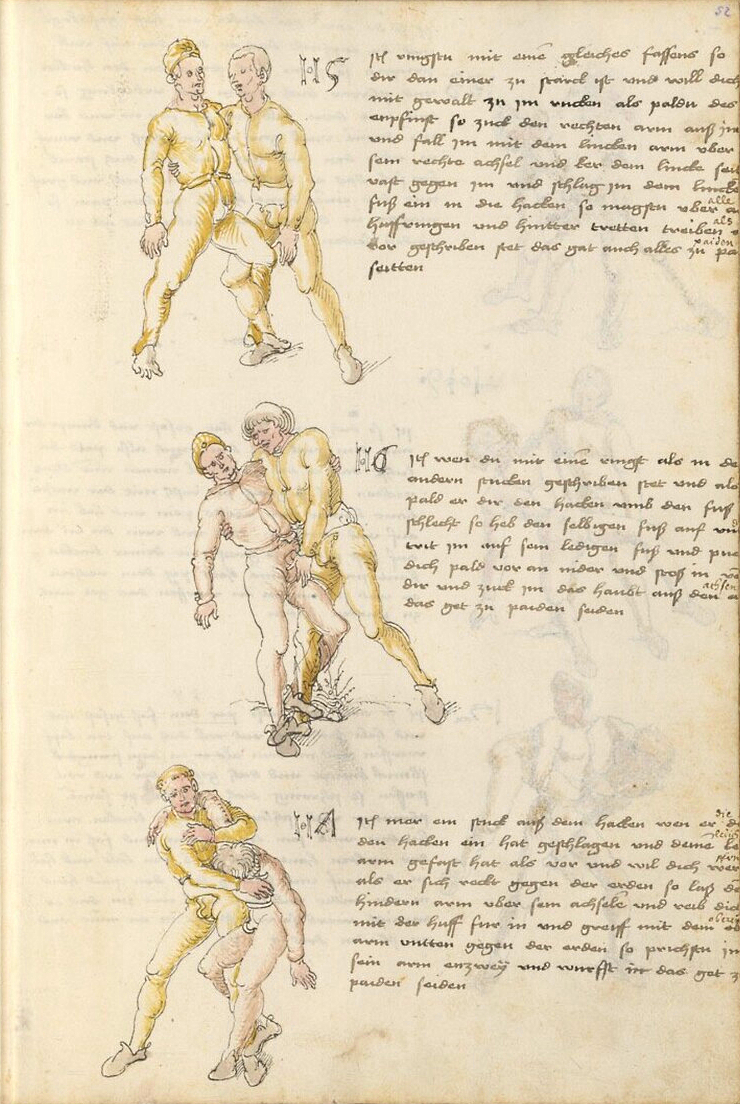 52
115
Itē ringstu mit einē gleiches fassens so
dir dan einer zu starck ist und will dich
mit gewalt zu im rucken als paldu des
enpfinst so zuck den rechten arm auß im
und fall im mit dem lincken arm uber
sein rechte achsel und ker dem lincke seit
vast gegen im und schlag im dem lincke
fuß ein in die hacken so magstu uber alle
huffringen und hintter tretten treiben als
vor geschriben stet das gat auch alles zu paiden
seitten
116
Itē wen du mit einē ringst als in de
andern stucken geschriben stet und als
pald er dir den hacken umb den fuß
schlecht so heb den selbigen fuß auf und
trit im auf sein ledigen fuß und
dich pald vor an nider und stoß in
dir und zuck im das haubt auß den achsen
das get zu paiden seiden
Itē mer ein stuck auß dem hacken wen er die
den hacken ein hat geschlagen und deine
arm gefast hat als vor und wil dich
als er sich reckt gegen der erden so laß
hindern arm uber sein achsele und reib dich
mit der huff fur in und greiff mit dem obern
arm untten gegen der erden so prichstu im
sein arm enzwey und wurfst in das get
paiden seiden